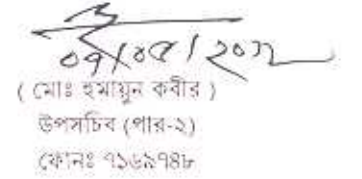 ০৭/০৫/২০১২
( মোঃ হুমায়ুন কবীর )
উপসচিব (পার-২)
ফোনঃ ৭১৬৯৭৪৮